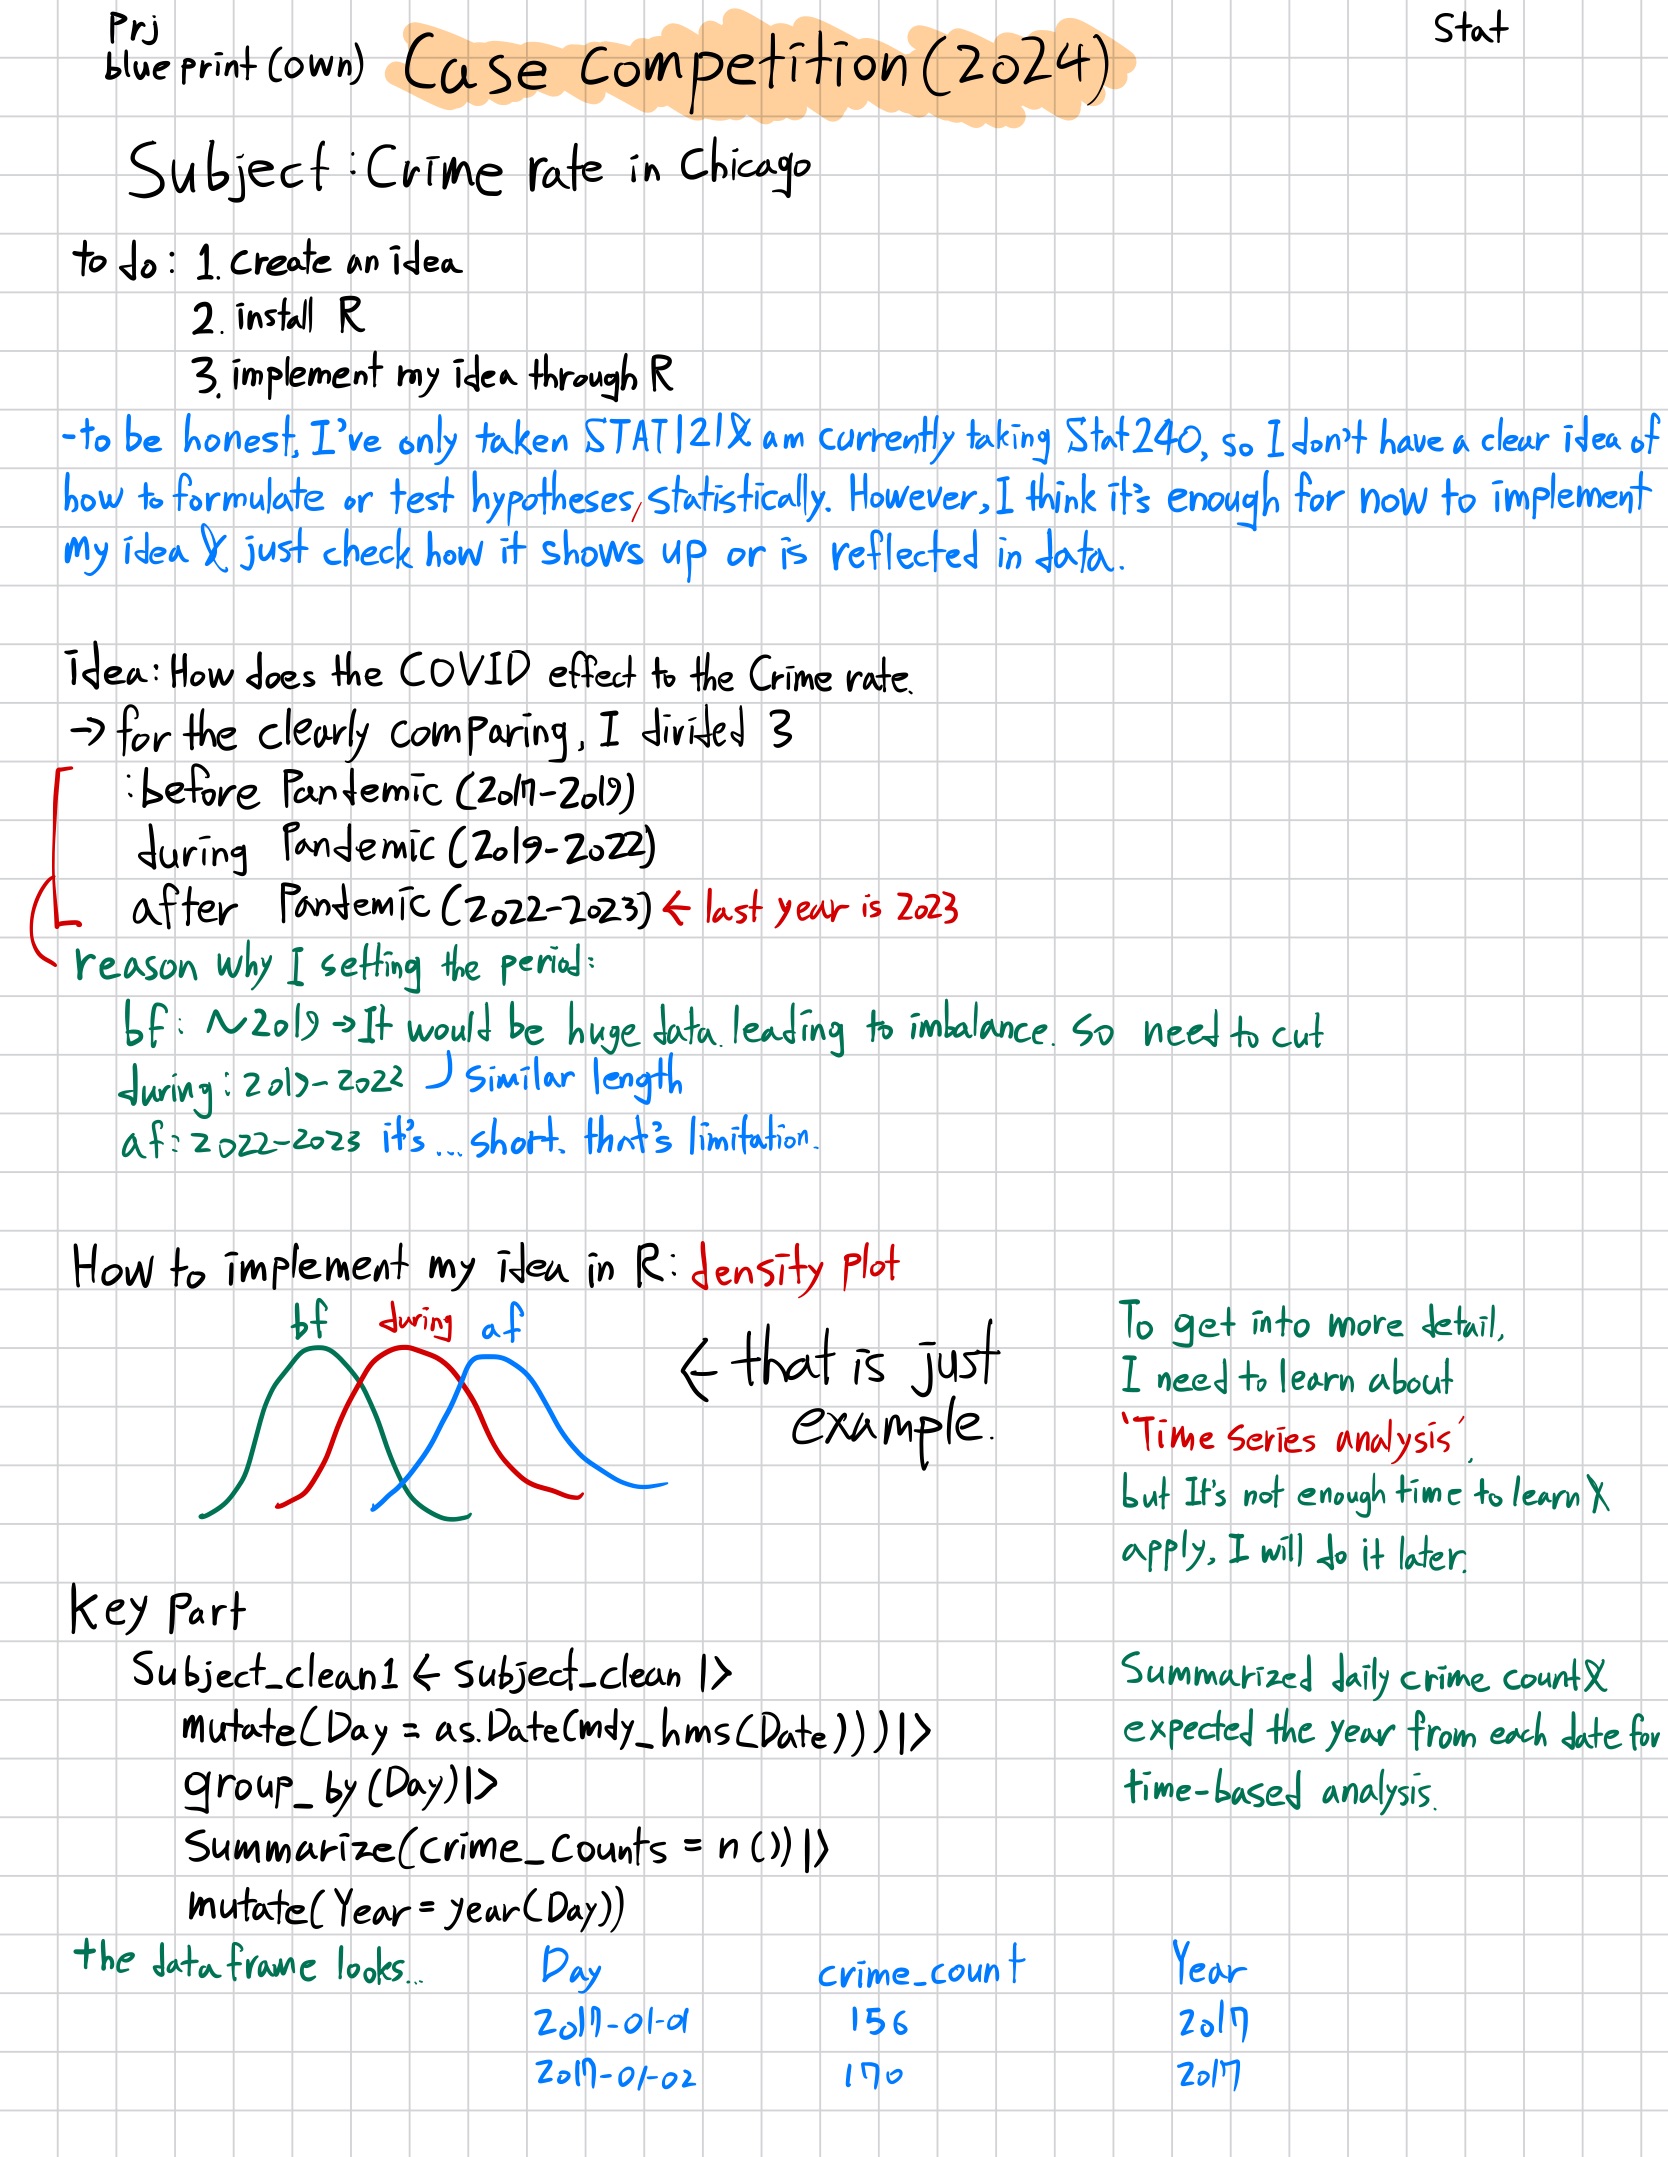 Prj
blue print (own) Case Competition (2024)
Stat
Subject : Crime rate in Chicago
to do : 1. create an idea
2. install R
3. implement my idea through R
-to be honest, I've only taken STAT121 & am currently taking Stat240, so I don't have a clear idea of
how to formulate or test hypotheses, statistically. However, I think it's enough for now to implement
my idea & just check how it shows up or is reflected in data.
idea: How does the COVID effect to the Crime rate.
→ for the clearly comparing, I divided 3
: before Pandemic (2017-2019)
during Pandemic (2019-2022)
after Pandemic (2022-2023) ← last year is 2023
reason why I setting the period:
bf: ~2019 → It would be huge data. leading to imbalance. so need to cut
during: 2019-2022 similar length
af: 2022-2023 it's... short. that's limitation.
How to implement my idea in R: density plot
bf during af
← that is just
example.
To get into more detail,
I need to learn about
'Time series analysis',
but It's not enough time to learn &
apply, I will do it later.
Key Part
Subject_clean1 <- subject_clean |>
mutate(Day = as.Date(mdy_hms(Date))) |>
group_by(Day) |>
Summarize(crime_counts = n()) |>
mutate(Year = year(Day))
Summarized daily crime count &
expected the year from each date for
time-based analysis.
the data frame looks...
Day crime_count Year
2017-01-01 156 2017
2017-01-02 170 2017